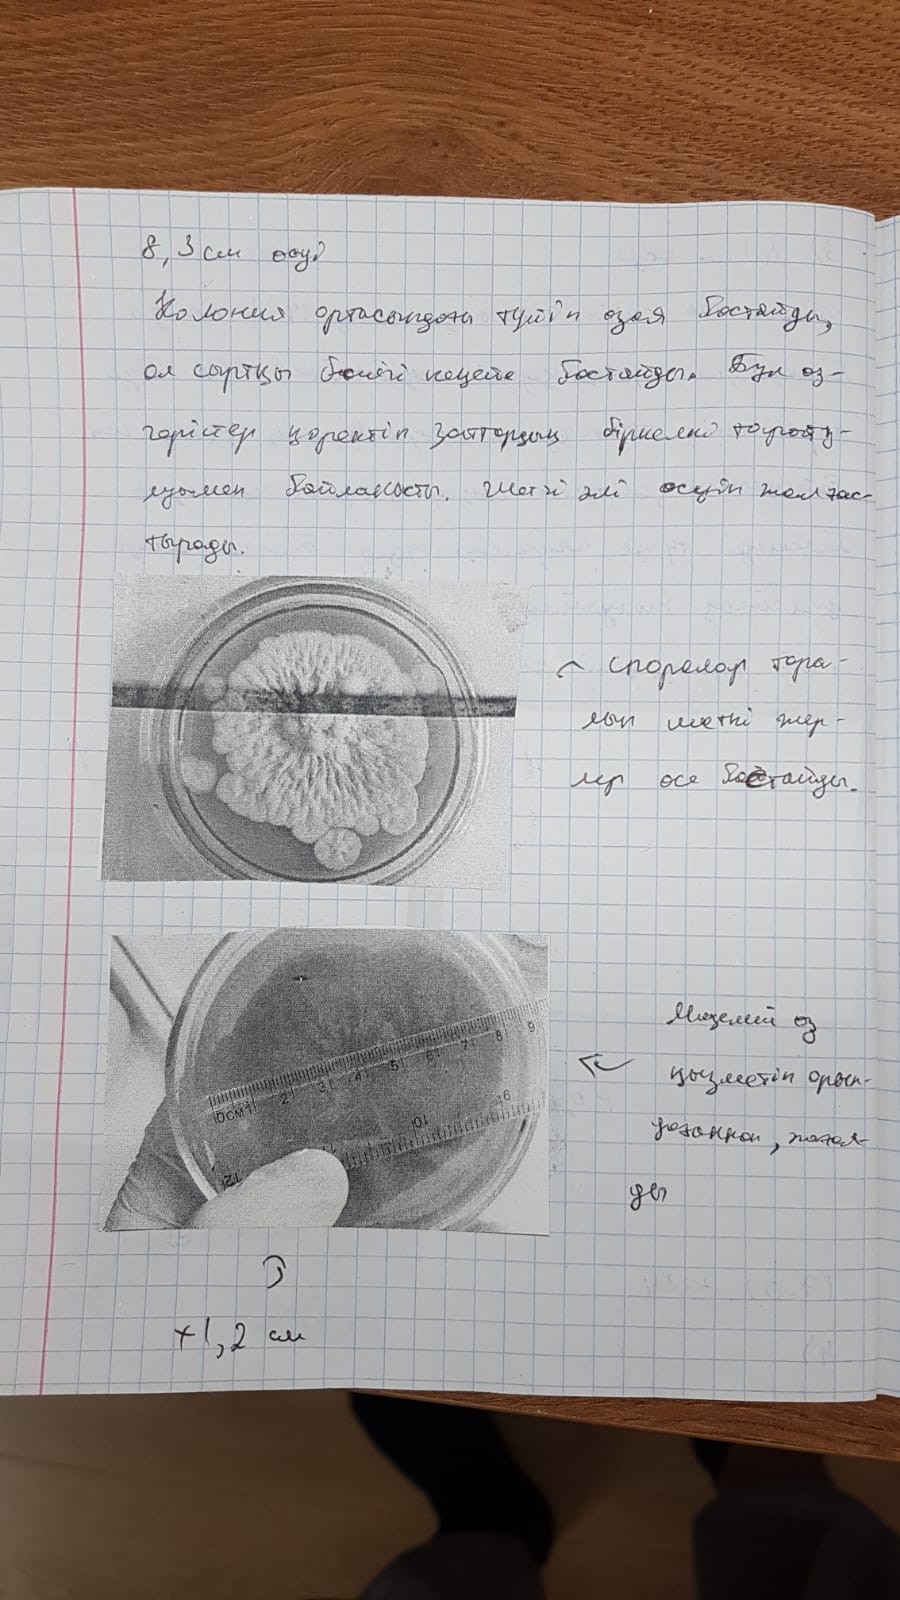 8,3 см өсуі
Колония ортасындағы түсін өзгерте бастайды,
ол сыртқы бөлігі кеңейе бастайды. Бұл өз-
герістер қоректік заттардың біркелкі таралу-
уымен байланысты. Шеткі әлі өсуін жалғас-
тырады.
споралар тара-
лып шеткі жер-
лер өсе бастайды.
0СМ1 2 3 4 5 6 7 8 9
Мицелий өз
қызметін орын-
дағаннан,
ды
12 10 9
+1,2 см